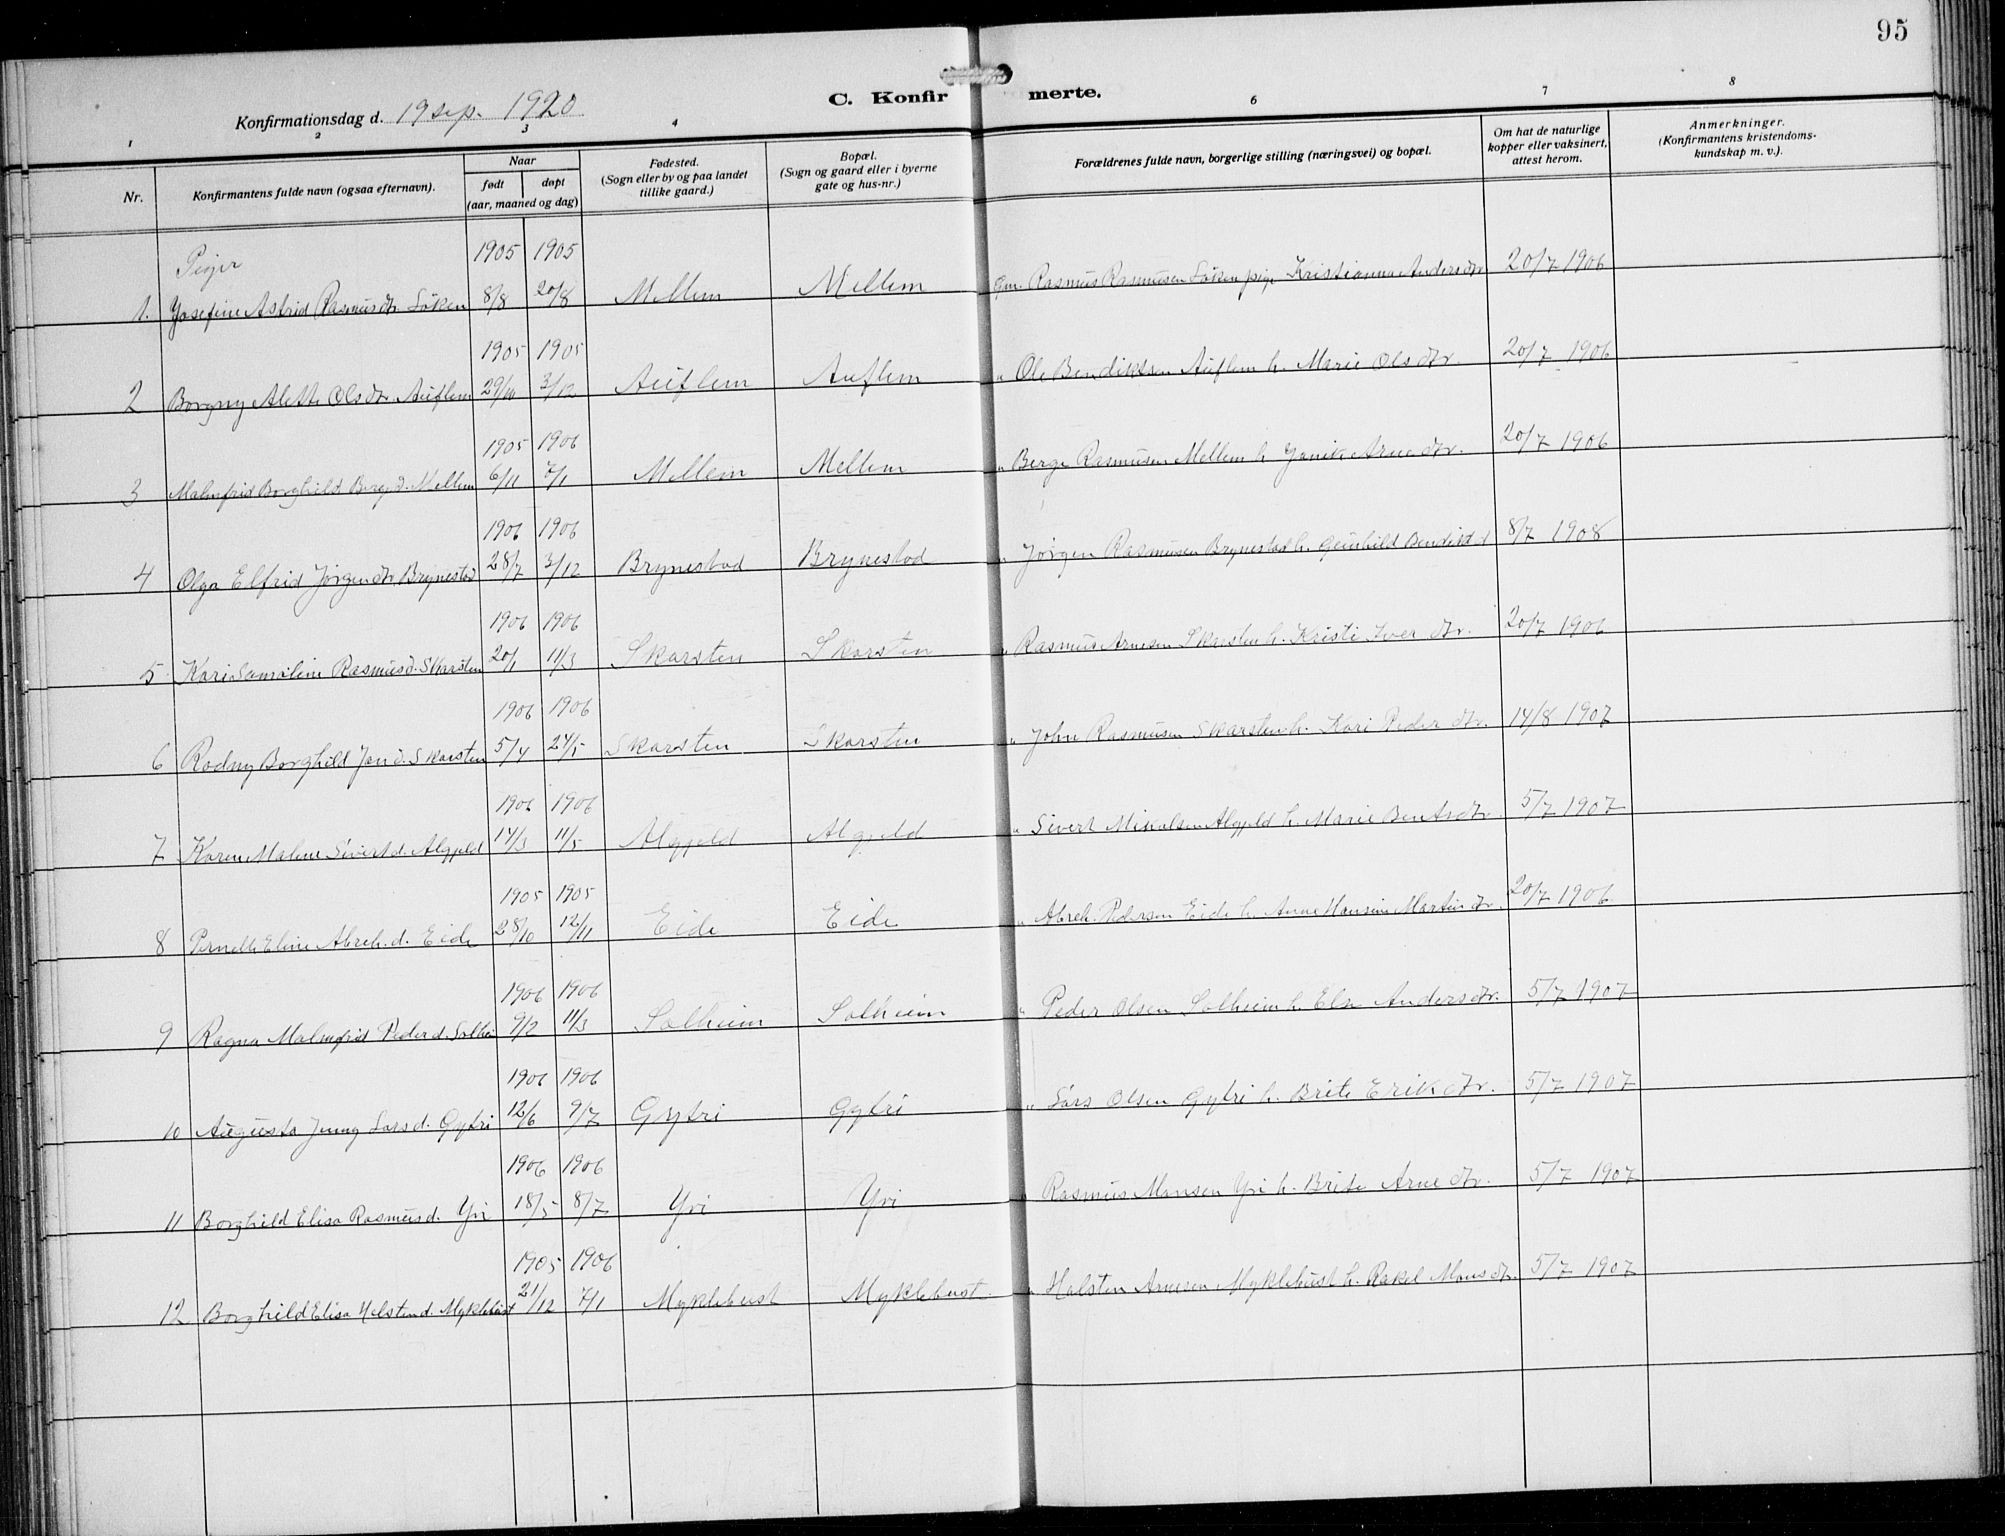 95
C. Konfirmerte.
Konfirmationsdag d. 19 sep. 1920
1 2 3 4 6 7 8
Nr. Konfirmantens fulde navn (ogsaa efternavn). Naar født døpt (aar, maaned og dag) Fødested. (Sogn eller by og paa landet tillike gaard.) Bopæl. (Sogn og gaard eller i byerne gate og hus-nr.) Forældrenes fulde navn, borgerlige stilling (næringsvei) og bopæl. Om hat de naturlige kopper eller vaksinert, attest herom. Anmerkninger. (Konfirmantens kristendoms-kundskap m. v.).
Piger 1905 1905
1. Josefine Astrid Rasmusdtr. Löken 8/8 20/8 Mellem Mellem Gm. Rasmus Rasmusen Löken pige Kristianna Andersdtr 20/7 1906
1905 1905
2 Borgny Alette Olsdtr. Auflem 29/10 3/12 Auflem Auflem " Ole Bendiksen Auflem h. Marie Olsdtr. 20/7 1906
1905 1906
3 Malmfrid Borghild Berg.d. Mellem 6/11 7/1 Mellem Mellem " Berge Rasmusen Mellem h. Janike Arnedtr. 20/7 1906
1906 1906
4 Olga Elfrid Jørgendtr Brynestad 28/7 3/12 Brynestad Brynestad " Jørgen Rasmusen Brynestad h. Bendikd 8/7 1908
1906 1906
5 Kari Rasmusd. Skarsten 20/1 11/3 Skarsten Skarsten " Rasmus Arnesen Skarsten h. Kristi Iverdtr. 20/7 1906
1906 1906
6 Rodny Borghild Jon d. Skarsten 5/4 27/5 Skarsten Skarsten " John Rasmusen Skarsten h. Kari Pederdtr. 14/8 1907
1906 1906
7 Karen Malene Sivertd. Algjeld 17/3 11/5 Algjeld Algjeld " Sivert Mikalsen Algjeld h. Marie Bentsdtr. 5/7 1907
1905 1905
8 Pernelle Eline Abreh. d. Eide 28/10 12/11 Eide Eide " Abreh. Pedersen Eide h. Anne Hansine Martindtr. 20/7 1906
1906 1906
9 Ragna Malmfrid Pederd. Solhei 9/2 11/3 Solheim Solheim " Peder Olsen Solheim h. Else Andersdtr. 5/7 1907
1906 1906
10 Augusta Jenny Larsd. Gytri 12/6 9/7 Gytri Gytri " Lars Olsen Gytri h. Brite Erikdtr. 5/7 1907
1906 1906
11 Borghild Elisa Rasmusd. Yri 18/5 8/7 Yri Yri " Rasmus Monsen Yri h. Brite Arnedtr. 5/7 1907
1905 1906
12 Borghild Elisa Halstend. Myklebust 21/12 7/1 Myklebust Myklebust " Halsten Arnesen Myklebust h. Rakel Monsdtr. 5/7 1907